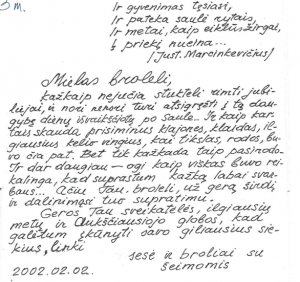 5 m.
Ir gyvenimas tęsiasi,
Ir pateka saulė rytais,
Ir metai, kaip eiklūs žirgai,
Į priekį nueina...
(Just. Marcinkevičius)
Mielas Broleli,
kažkaip nejučia stukteli eimti jubi-
liejai, ir nori nenori turi atsigręžti į tą dau-
gybę dėnų išvaikščiotų po saule. Ir kaip kar-
tais skauda prisiminus klajones, klaidas, il-
giausius kelio vingius, kai tikslas, rodos, bu-
vo čia pat. Bet tik kažkada taip pasirodo.
Ir dar daugiau – ogi kaip viskas buvo rei-
kalinga, kad suprastum kažką labai svar-
baus... Ačiū Tau, broleli, už gerą širdį
ir dalinimąsi tuo supratimu.
Geros Tau sveikatėlės, ilgiausių
metų ir Aukščiausiojo globos, kad
galėtum įkūnyti savo giliausius sie-
kius, linki
sesė ir broliai su
šeimomis
2002.02.02.